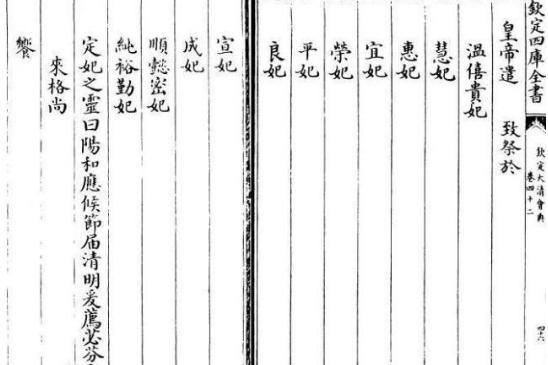 欽定四庫全書
欽定大清會典
卷四十二
四六
皇帝遣 致祭於
溫僖貴妃
慧妃
惠妃
宜妃
榮妃
平妃
良妃
宣妃
成妃
順懿密妃
純裕勤妃
定妃之靈曰陽和應候節届清明爰薦苾芬
來格尚
饗